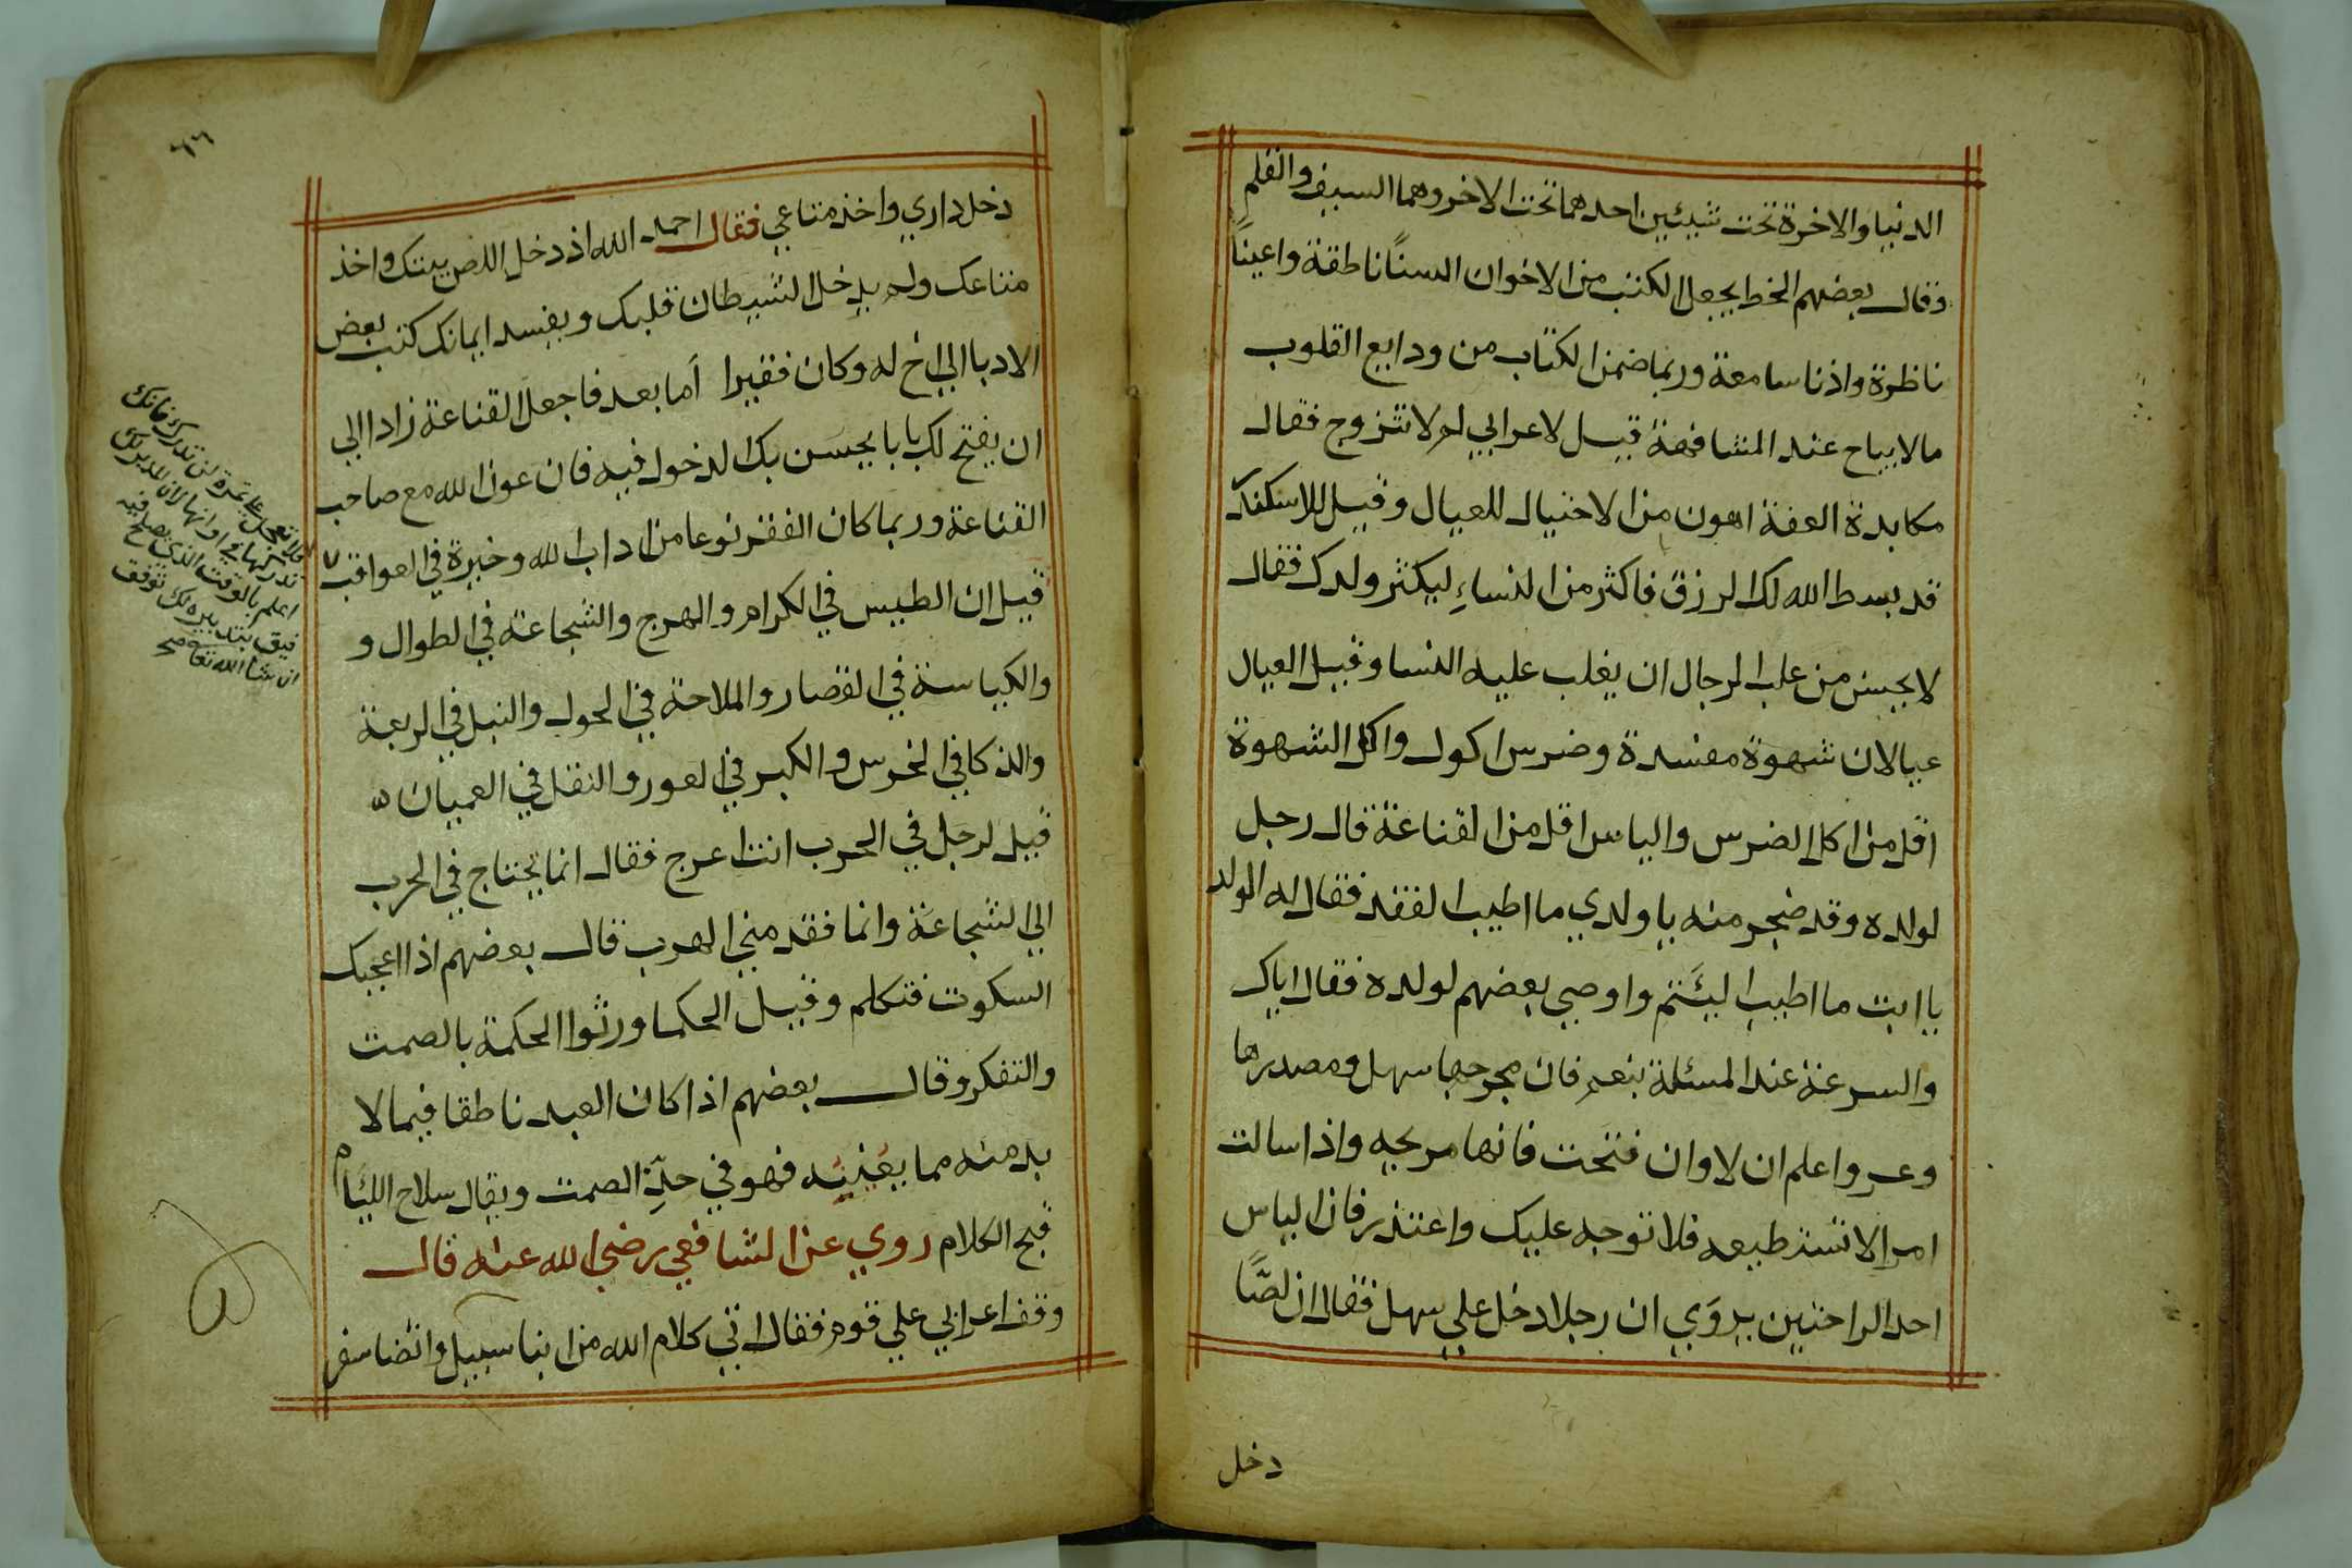 الدنيا والاخرة تحت شيئين احدهما تحت الاخر وهما السيف والقلم
وقال بعضهم الخط يجعل الكتب من الاخوان السناً ناطقة واعيناً
ناظرة واذنا سامعة وربما ضمن الكتاب من ودايع القلوب
مالا يباح عند المشافهة قيل لاعرابي لم لا تتزوج فقال
مكابدة العفة اهون من الاحتيال للعيال وقيل للاسكندر
قد بسط الله لك الرزق فاكثر من النساءِ ليكثر ولدك فقال
لا يحسن من غلب الرجال ان يغلب عليه النسا وقيل العيال
عيالان شهوة مفسدة وضرس اكول واكل الشهوة
اقل من اكل الضرس والياس اقل من القناعة قال رجل
لولده وقد ضجر منه يا ولدي ما اطيب الفقد فقال له الولد
يا ابت ما اطيب اليَتم واوصي بعضهم لولده فقال اياك
والسرعة عند المسئلة بنعم فان مخرجها سهل ومصدرها
وعر واعلم ان لا وان قبحت فانها مريحه واذا سالت
امرا لا تستطيعه فلا توجه عليك واعتذر فان الياس
احد الراحتين يروَي ان رجلا دخل علي سهل فقال ان لصًّا
دخل
٦٦
دخل داري واخذ متاعي فقال احمد الله اذ دخل اللص بيتك واخذ
متاعك ولم يدخل الشيطان قلبك ويفسد ايمانك كتب بعض
الادبا الي اخ له وكان فقيرا أما بعد فاجعل القناعة زادا الي
ان يفتح لك بابا يحسن بك الدخول فيه فان عون الله مع صاحب
القناعة وربما كان الفقر نوعا من اداب الله وخيرة في العواقب
قيل ان الطيس في الكرام والهرج والشجاعة في الطوال و
والكياسة في القصار والملاحة في الحول والنبل في الربعة
والذكا في الخرس والكبر في العور والثقل في العميان
قيل لرجل في الحرب انت اعرج فقال انما يحتاج في الحرب
الي الشجاعة وانما فقد مني الهرب قال بعضهم اذا اعجبك
السكوت فتكلم وقيل الحكما ورثوا الحكمة بالصمت
والتفكر وقال بعضهم اذا كان العبد ناطقا فيما لا
بد منه مما يعنيه فهو في حدّ الصمت ويقال سلاح اللئام
قبح الكلام روي عن الشافعي رضي الله عنه قال
وقف اعرابي علي قوم فقال اني كلام الله من ابنا سبيل وانضا سفر
فلا تعجل علي ثمرة لن تدرك فانك
تدركها في اوانها لان المدبر لك
اعلم بالوقت الذي يصلح فيه
فيق بتدبيره لك توفق
ان شا الله تعا صح